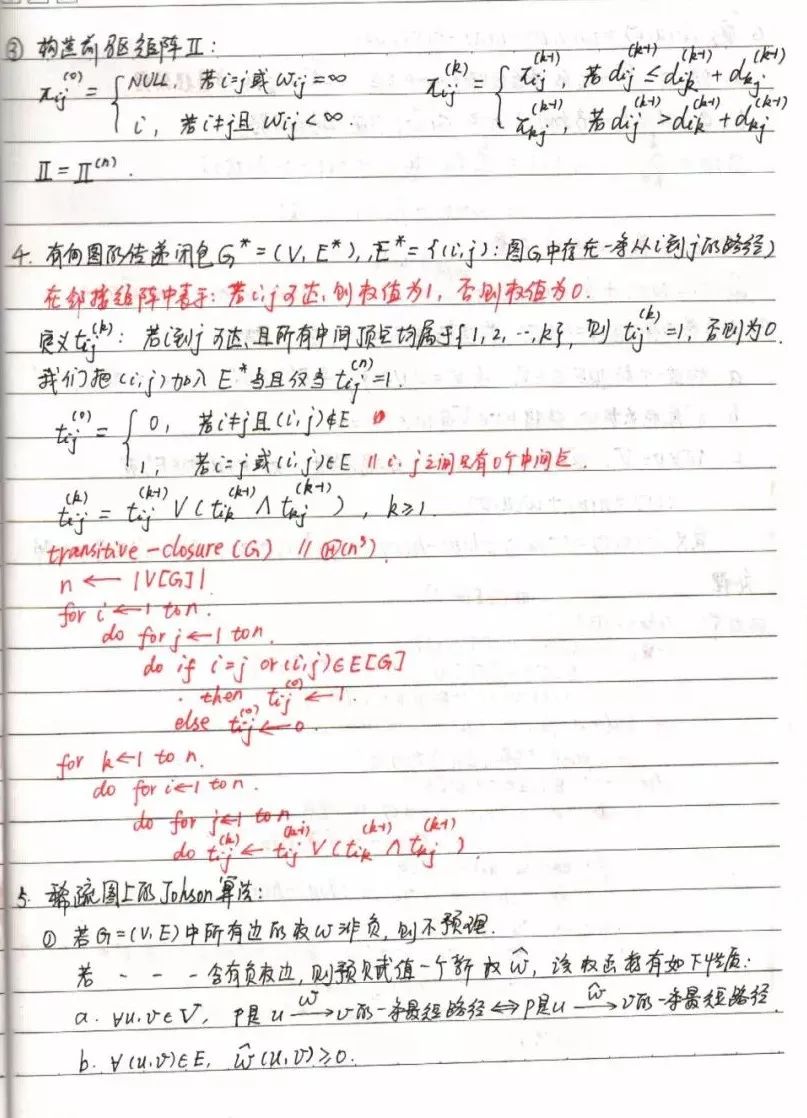 ③ 构造前驱矩阵Π:
πij^(0) = { NULL, 若i=j或wij=∞
i, 若i≠j且wij<∞
πij^(k) = { πij^(k-1), 若dij^(k-1) ≤ dik^(k-1) + dkj^(k-1)
πkj^(k-1), 若dij^(k-1) > dik^(k-1) + dkj^(k-1)
Π = Π^(n).
4. 有向图的传递闭包G* = (V, E*), E* = {(i,j): 图G中存在一条从i到j的路径}
在邻接矩阵中表示: 若i,j可达, 则权值为1, 否则权值为0.
定义tij^(k): 若i到j可达, 且所有中间顶点均属于{1, 2, ..., k}, 则 tij^(k) = 1, 否则为0.
我们把(i,j)加入E*当且仅当tij^(n)=1.
tij^(0) = { 0, 若i≠j且(i,j)∉E
1, 若i=j或(i,j)∈E // i, j之间只有0个中间点.
tij^(k) = tij^(k-1) ∨ (tik^(k-1) ∧ tkj^(k-1)), k≥1.
transitive-closure(G) // Θ(n³).
n ← |V[G]|
for i ← 1 to n.
do for j ← 1 to n.
do if i=j or (i,j)∈E[G]
then tij^(0) ← 1.
else tij^(0) ← 0.
for k ← 1 to n.
do for i ← 1 to n.
do for j ← 1 to n.
do tij^(k) ← tij^(k-1) ∨ (tik^(k-1) ∧ tkj^(k-1)).
5. 稀疏图上的Johson算法:
① 若G=(V,E)中所有边的权w非负, 则不预理.
若 - - - 含有负权边, 则预赋值一个新权ŵ, 该权函数有如下性质:
a. ∀u,v∈V, P是u —w→ v的一条最短路径 ⇔ P是u —ŵ→ v的一条最短路径
b. ∀(u,v)∈E, ŵ(u,v)≥0.